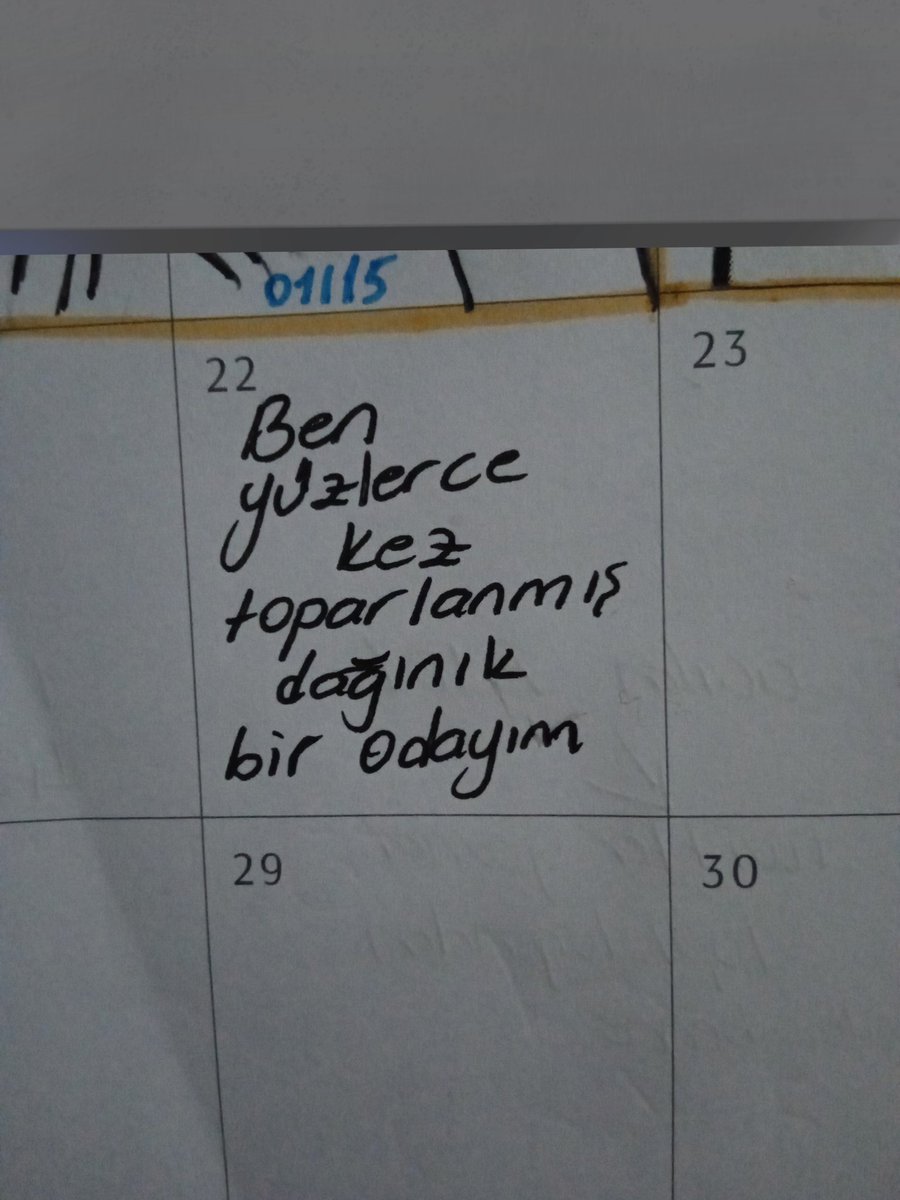 01/15
22
23
Ben
yüzlerce
kez
toparlanmış
dağınık
bir odayım
29
30